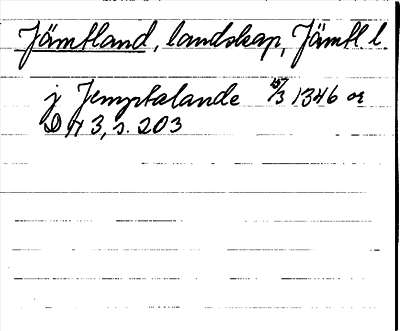 Jämtland, landskap, Jämtl l.
j Jemptalande 15/3 1346 or
DN 3, s. 203